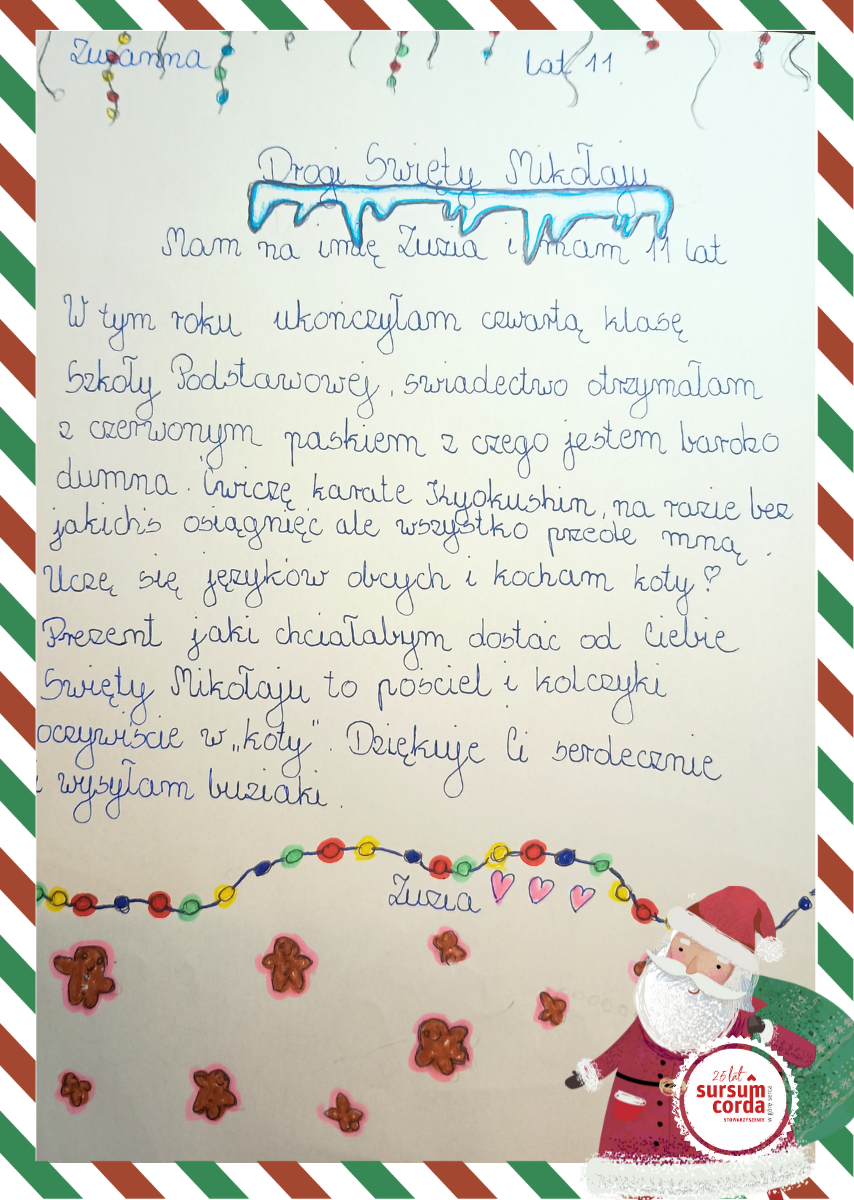 Zuzanna lat 11
Drogi Święty Mikołaju
Mam na imię Zuzia i mam 11 lat
W tym roku ukończyłam czwartą klasę
Szkoły Podstawowej, swiadectwo otrzymałam
z czerwonym paskiem z czego jestem bardzo
dumna. Ćwiczę karate Kyokushin, na razie bez
jakichś osiągnięć ale wszystko przede mną.
Uczę się języków obcych i kocham koty♡
Prezent jaki chciałabym dostać od Ciebie
Święty Mikołaju to pościel i kolczyki
oczywiście w „koty". Dziękuje Ci serdecznie
i wysyłam buziaki.
Zuzia ♡ ♡ ♡
25 lat
sursum
corda
STOWARZYSZENIE
w górę serca